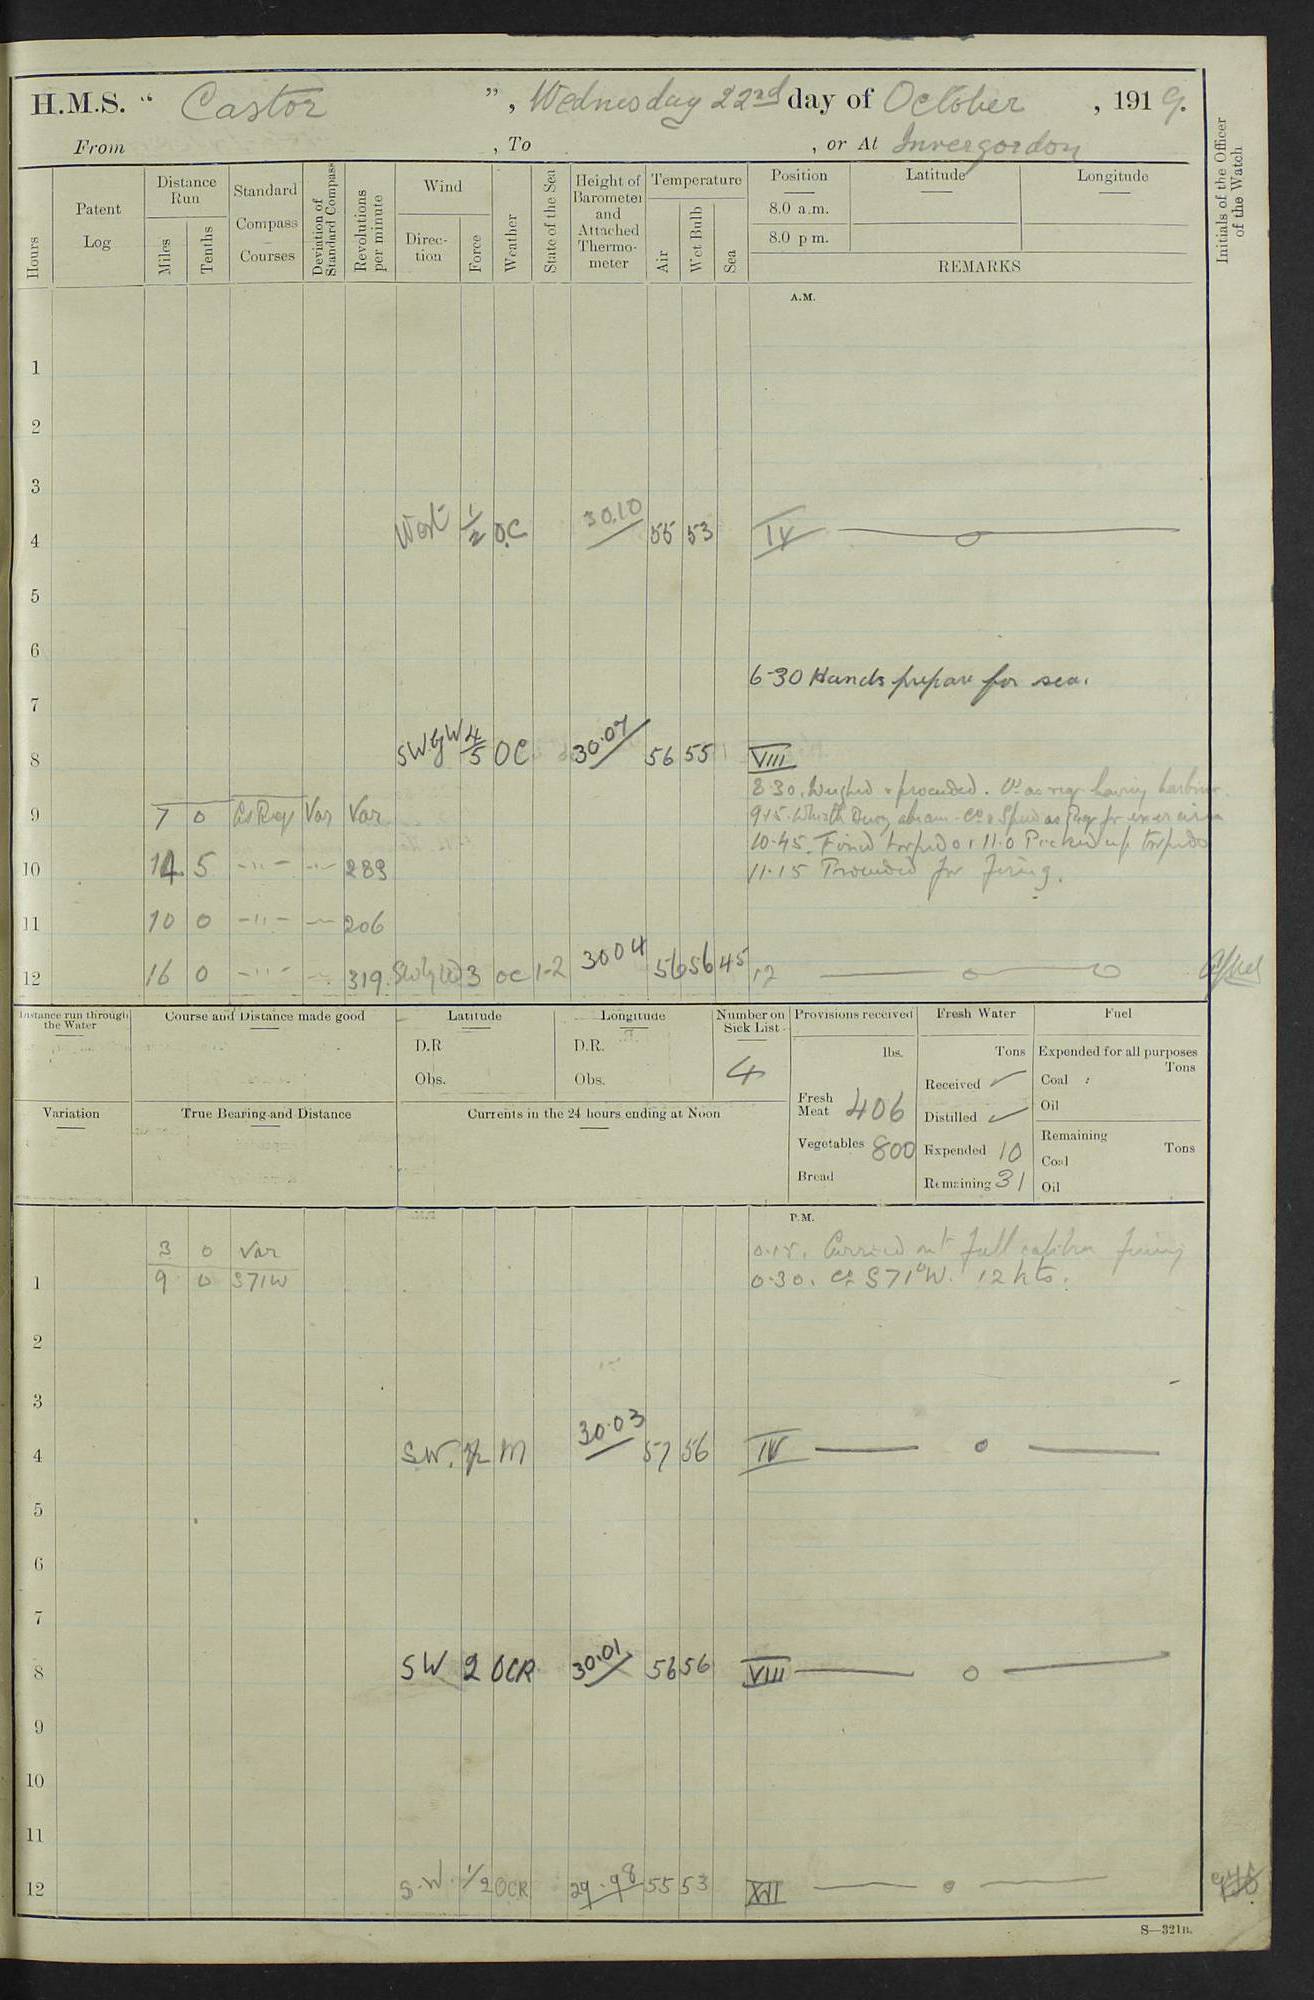 H.M.S. " Castor ", Wednesday 22nd day of October, 1919.
From , To , or At Invergordon
Hours
Patent Log
Distance Run
Miles
Tenths
Standard Compass Courses
Deviation of Standard Compass
Revolutions per minute
Wind
Direction
Force
Weather
State of the Sea
Height of Barometer and Attached Thermometer
Temperature
Air
Wet Bulb
Sea
Position
Latitude
Longitude
8.0 a.m.
8.0 p.m.
REMARKS
Initials of the Officer of the Watch
A.M.
1
2
3
4 West 1/2 O.C 30.10 55 53 IV
5
6
6-30 Hands prepare for sea.
7
8 SWbyW 4/5 OC 30.07 56 55 VIII
8.30. Weighed & proceeded. Co as req leaving harbour.
9 7 0 As Req Var Var
9.15. Whistle Buoy abeam. Co & Speed as Req for exercises
10.45. Fired torpedo 11.0 Picked up torpedo
10 14 5 -"- -"- 289
11.15 Proceeded for firing.
11 10 0 -"- 206
12 16 0 -"- 319. SWbyW 3 OC 1-2 30 04 56 56 45 12
Distance run through the Water
Course and Distance made good
Latitude
D.R
Obs.
Longitude
D.R.
Obs.
Number on Sick List
4
Provisions received
lbs.
Fresh Meat 406
Vegetables 800
Bread
Fresh Water
Tons
Received ✓
Distilled ✓
Expended 10
Remaining 31
Fuel
Expended for all purposes
Tons
Coal
Oil
Remaining
Tons
Coal
Oil
Variation
True Bearing and Distance
Currents in the 24 hours ending at Noon
P.M.
3 0 Var 0.15. Carried out full calibre firing
1 9 0 S71W 0.30. Co S71°W. 12 kts.
2
3
4 SW. 1/2 M 30.03 57 56 IV
5
6
7
8 SW 2 OCR 30.01 56 56 VIII
9
10
11
12 S.W. 1/2 OCR 29.98 55 53 XII
S—321B.